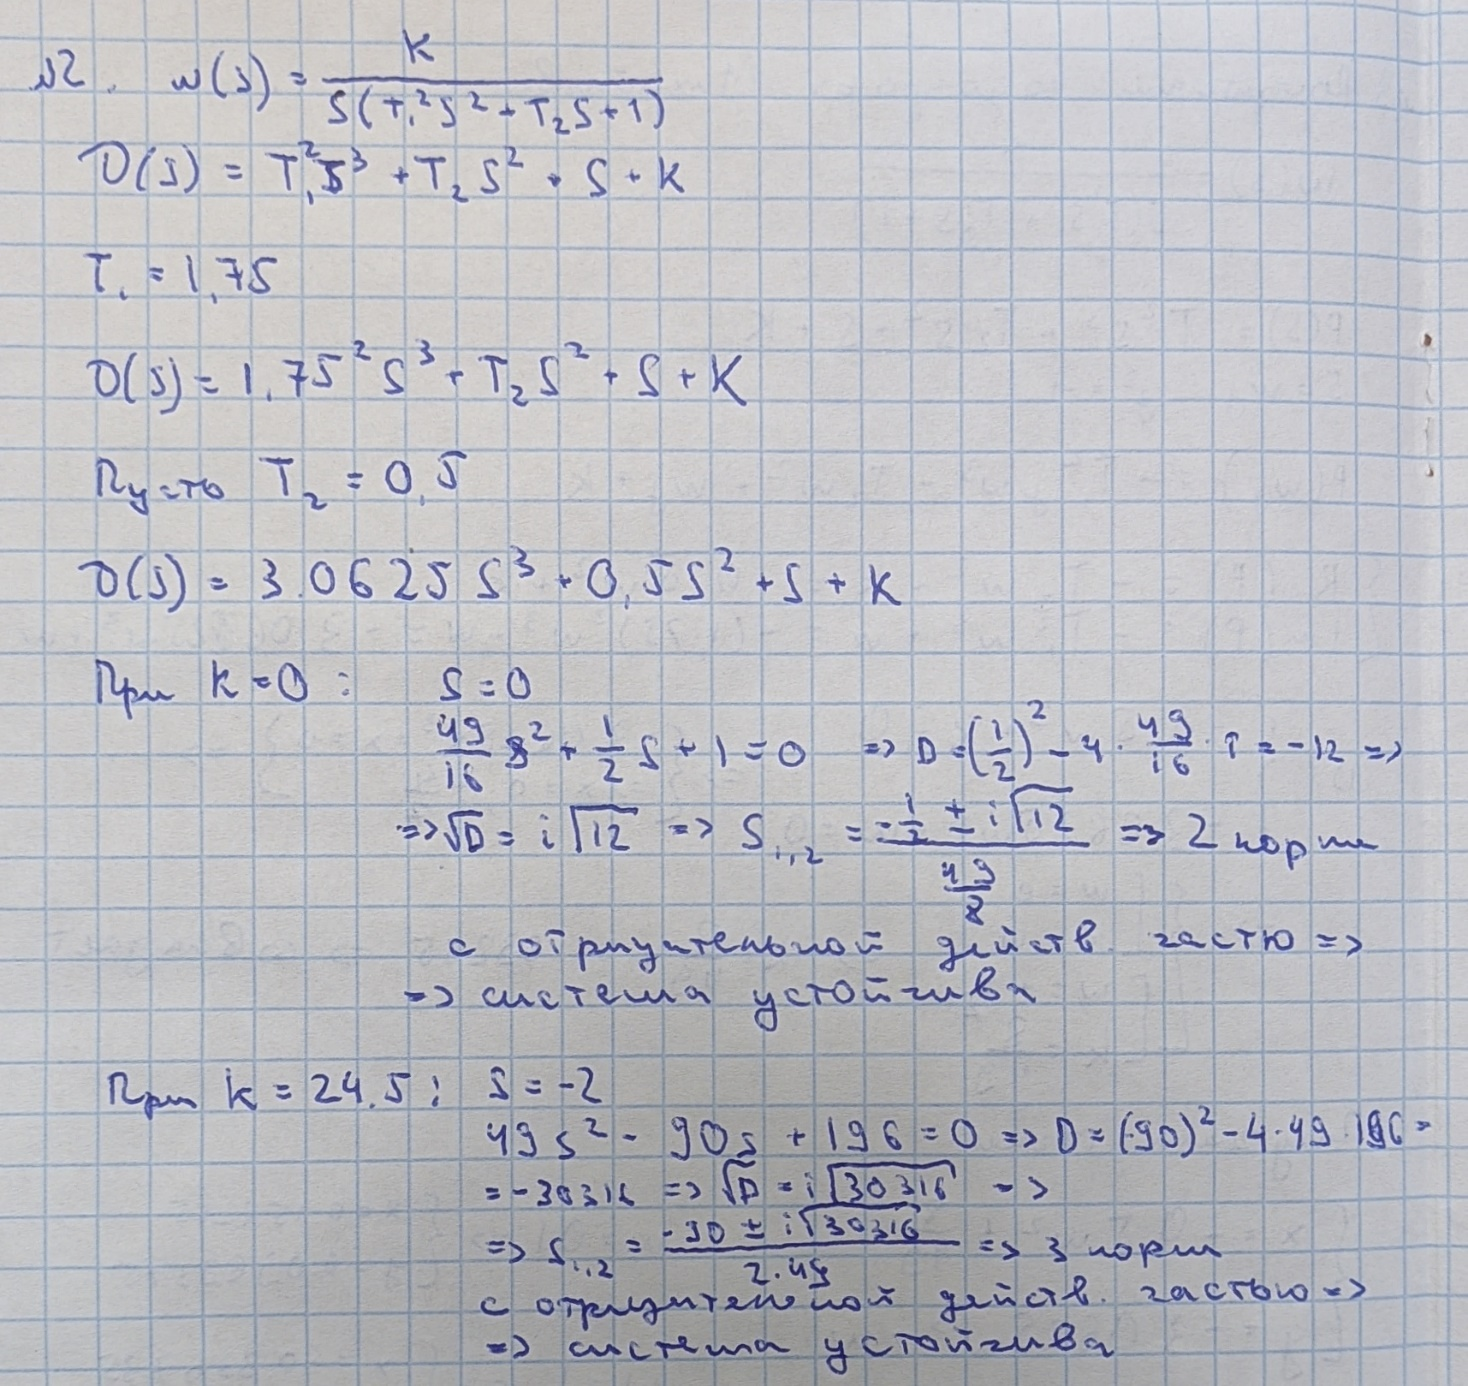 №2. W(s) = K / S(T₁²S² + T₂S + 1)
D(S) = T₁²S³ + T₂S² + S + K
T₁ = 1,75
D(S) = 1,75²S³ + T₂S² + S + K
Пусть T₂ = 0,5
D(S) = 3.0625S³ + 0,5S² + S + K
При K = 0 : S = 0
49/16 S² + 1/2 S + 1 = 0 => D = (1/2)² - 4 · 49/16 · 1 = -12 =>
=> √D = i√12 => S₁,₂ = (-1/2 ± i√12) / (49/8) => 2 корня
с отрицательной действ. частю =>
=> система устойчива
При K = 24.5 : S = -2
49s² - 90s + 196 = 0 => D = (-90)² - 4·49·196 =
= -30316 => √D = i√30316 =>
=> S₁,₂ = (-90 ± i√30316) / (2·49) => 3 корня
с отрицательной действ. частью =>
=> система устойчива